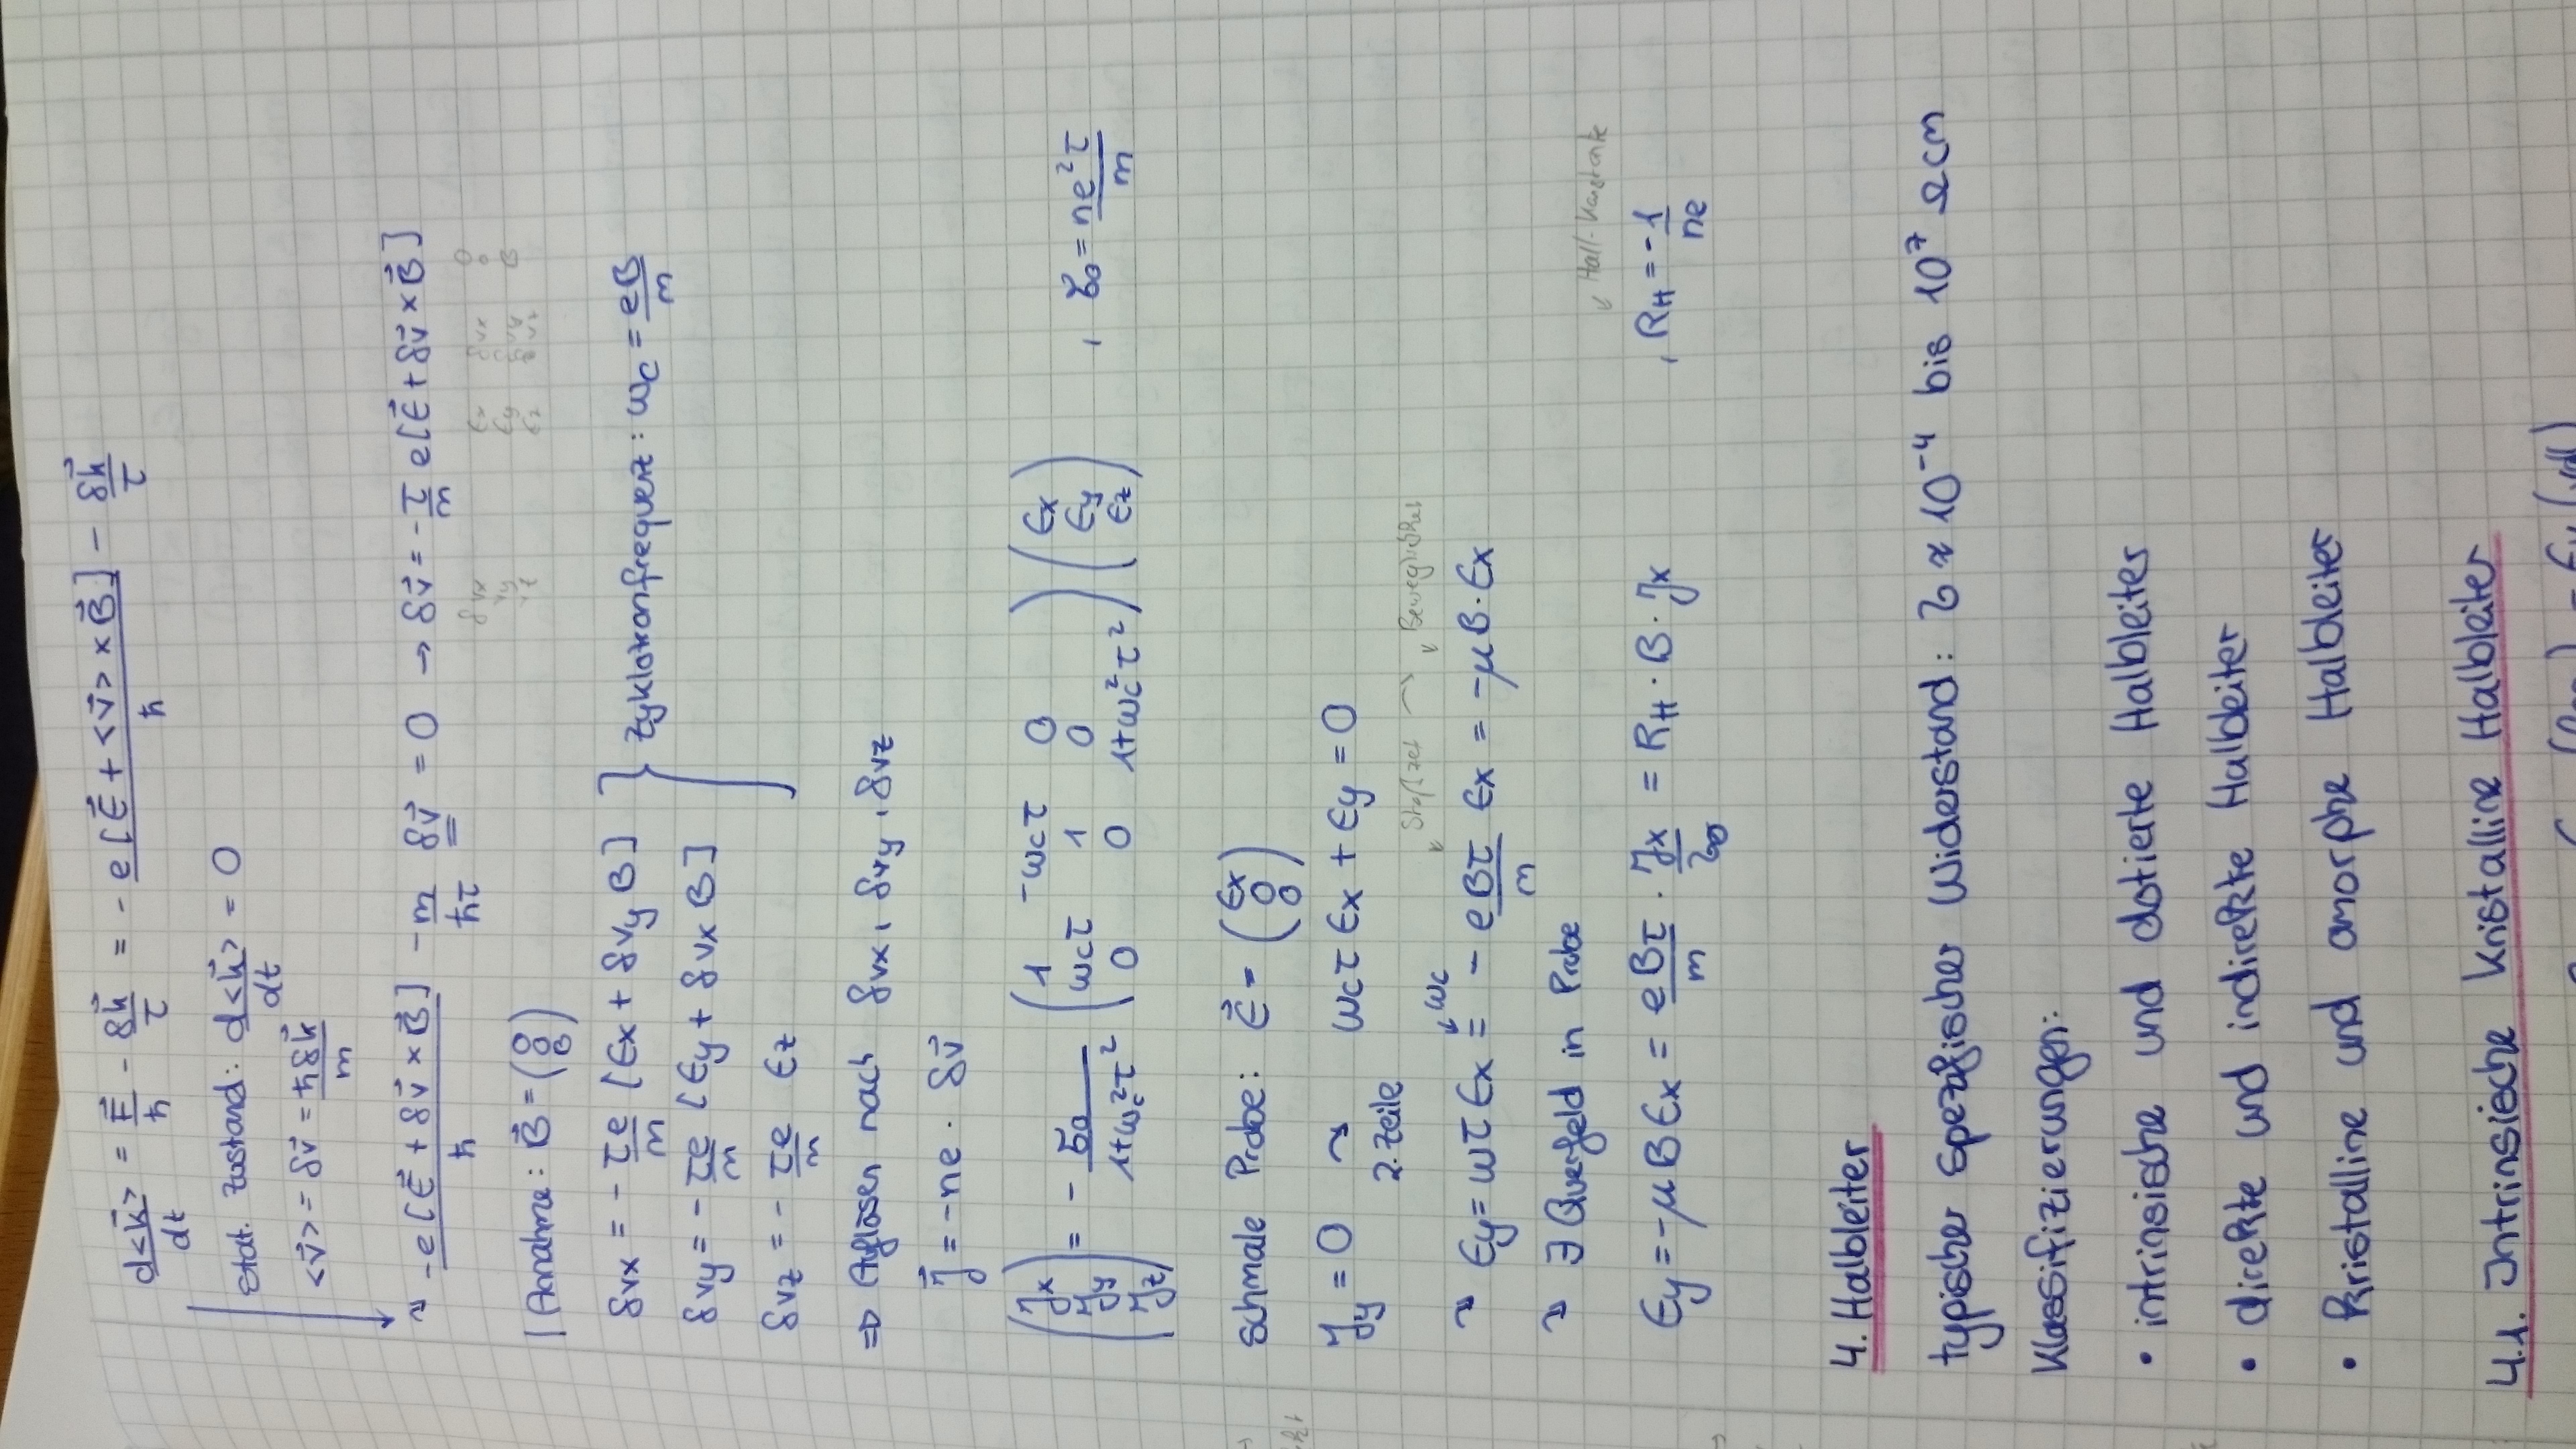 d<k⃗>/dt = F⃗/ħ - δk⃗/τ = - e[Ɛ⃗ + <v⃗> × B⃗]/ħ - δk⃗/τ
stat. Zustand: d<k⃗>/dt = 0
<v⃗> = δv⃗ = ħδk⃗/m
↝ -e[Ɛ⃗ + δv⃗ × B⃗]/ħ - m/ħτ δv⃗ = 0 → δv⃗ = - τ/m e[Ɛ⃗ + δv⃗ × B⃗]
δvx Ɛx δvx 0
vy Ɛy δvy 0
vz Ɛz δvz B
| Annahme: B⃗ = (0 0 B)
δvx = - τe/m [Ɛx + δvy B]
Zyklotronfrequenz: ωc = eB/m
δvy = - τe/m [Ɛy + δvx B]
δvz = - τe/m Ɛz
⇒ Auflösen nach δvx, δvy, δvz
j⃗ = -ne · δv⃗
(jx jy jz) = - σ0/1+ωc²τ² (1 -ωcτ 0 / ωcτ 1 0 / 0 0 1+ωc²τ²) (Ɛx Ɛy Ɛz) , σ0 = ne²τ/m
schmale Probe: Ɛ⃗ = (Ɛx 0 0)
jy = 0 ↝ ωcτ Ɛx + Ɛy = 0
2. Zeile
Stoßzeit → Beweglichkeit
↙ ωc
↝ Ɛy = ωτ Ɛx = - eBτ/m Ɛx = -μB·Ɛx
↝ ∃ Querfeld in Probe
↙ Hall-Konstante
Ɛy = -μBƐx = eBτ/m · jx/σ0 = RH · B · jx , RH = -1/ne
4. Halbleiter
typischer spezifischer Widerstand: σ ≈ 10⁻⁴ bis 10⁷ Ωcm
Klassifizierungen:
• intrinsische und dotierte Halbleiter
• direkte und indirekte Halbleiter
• kristalline und amorphe Halbleiter
4.1. Intrinsische kristalline Halbleiter